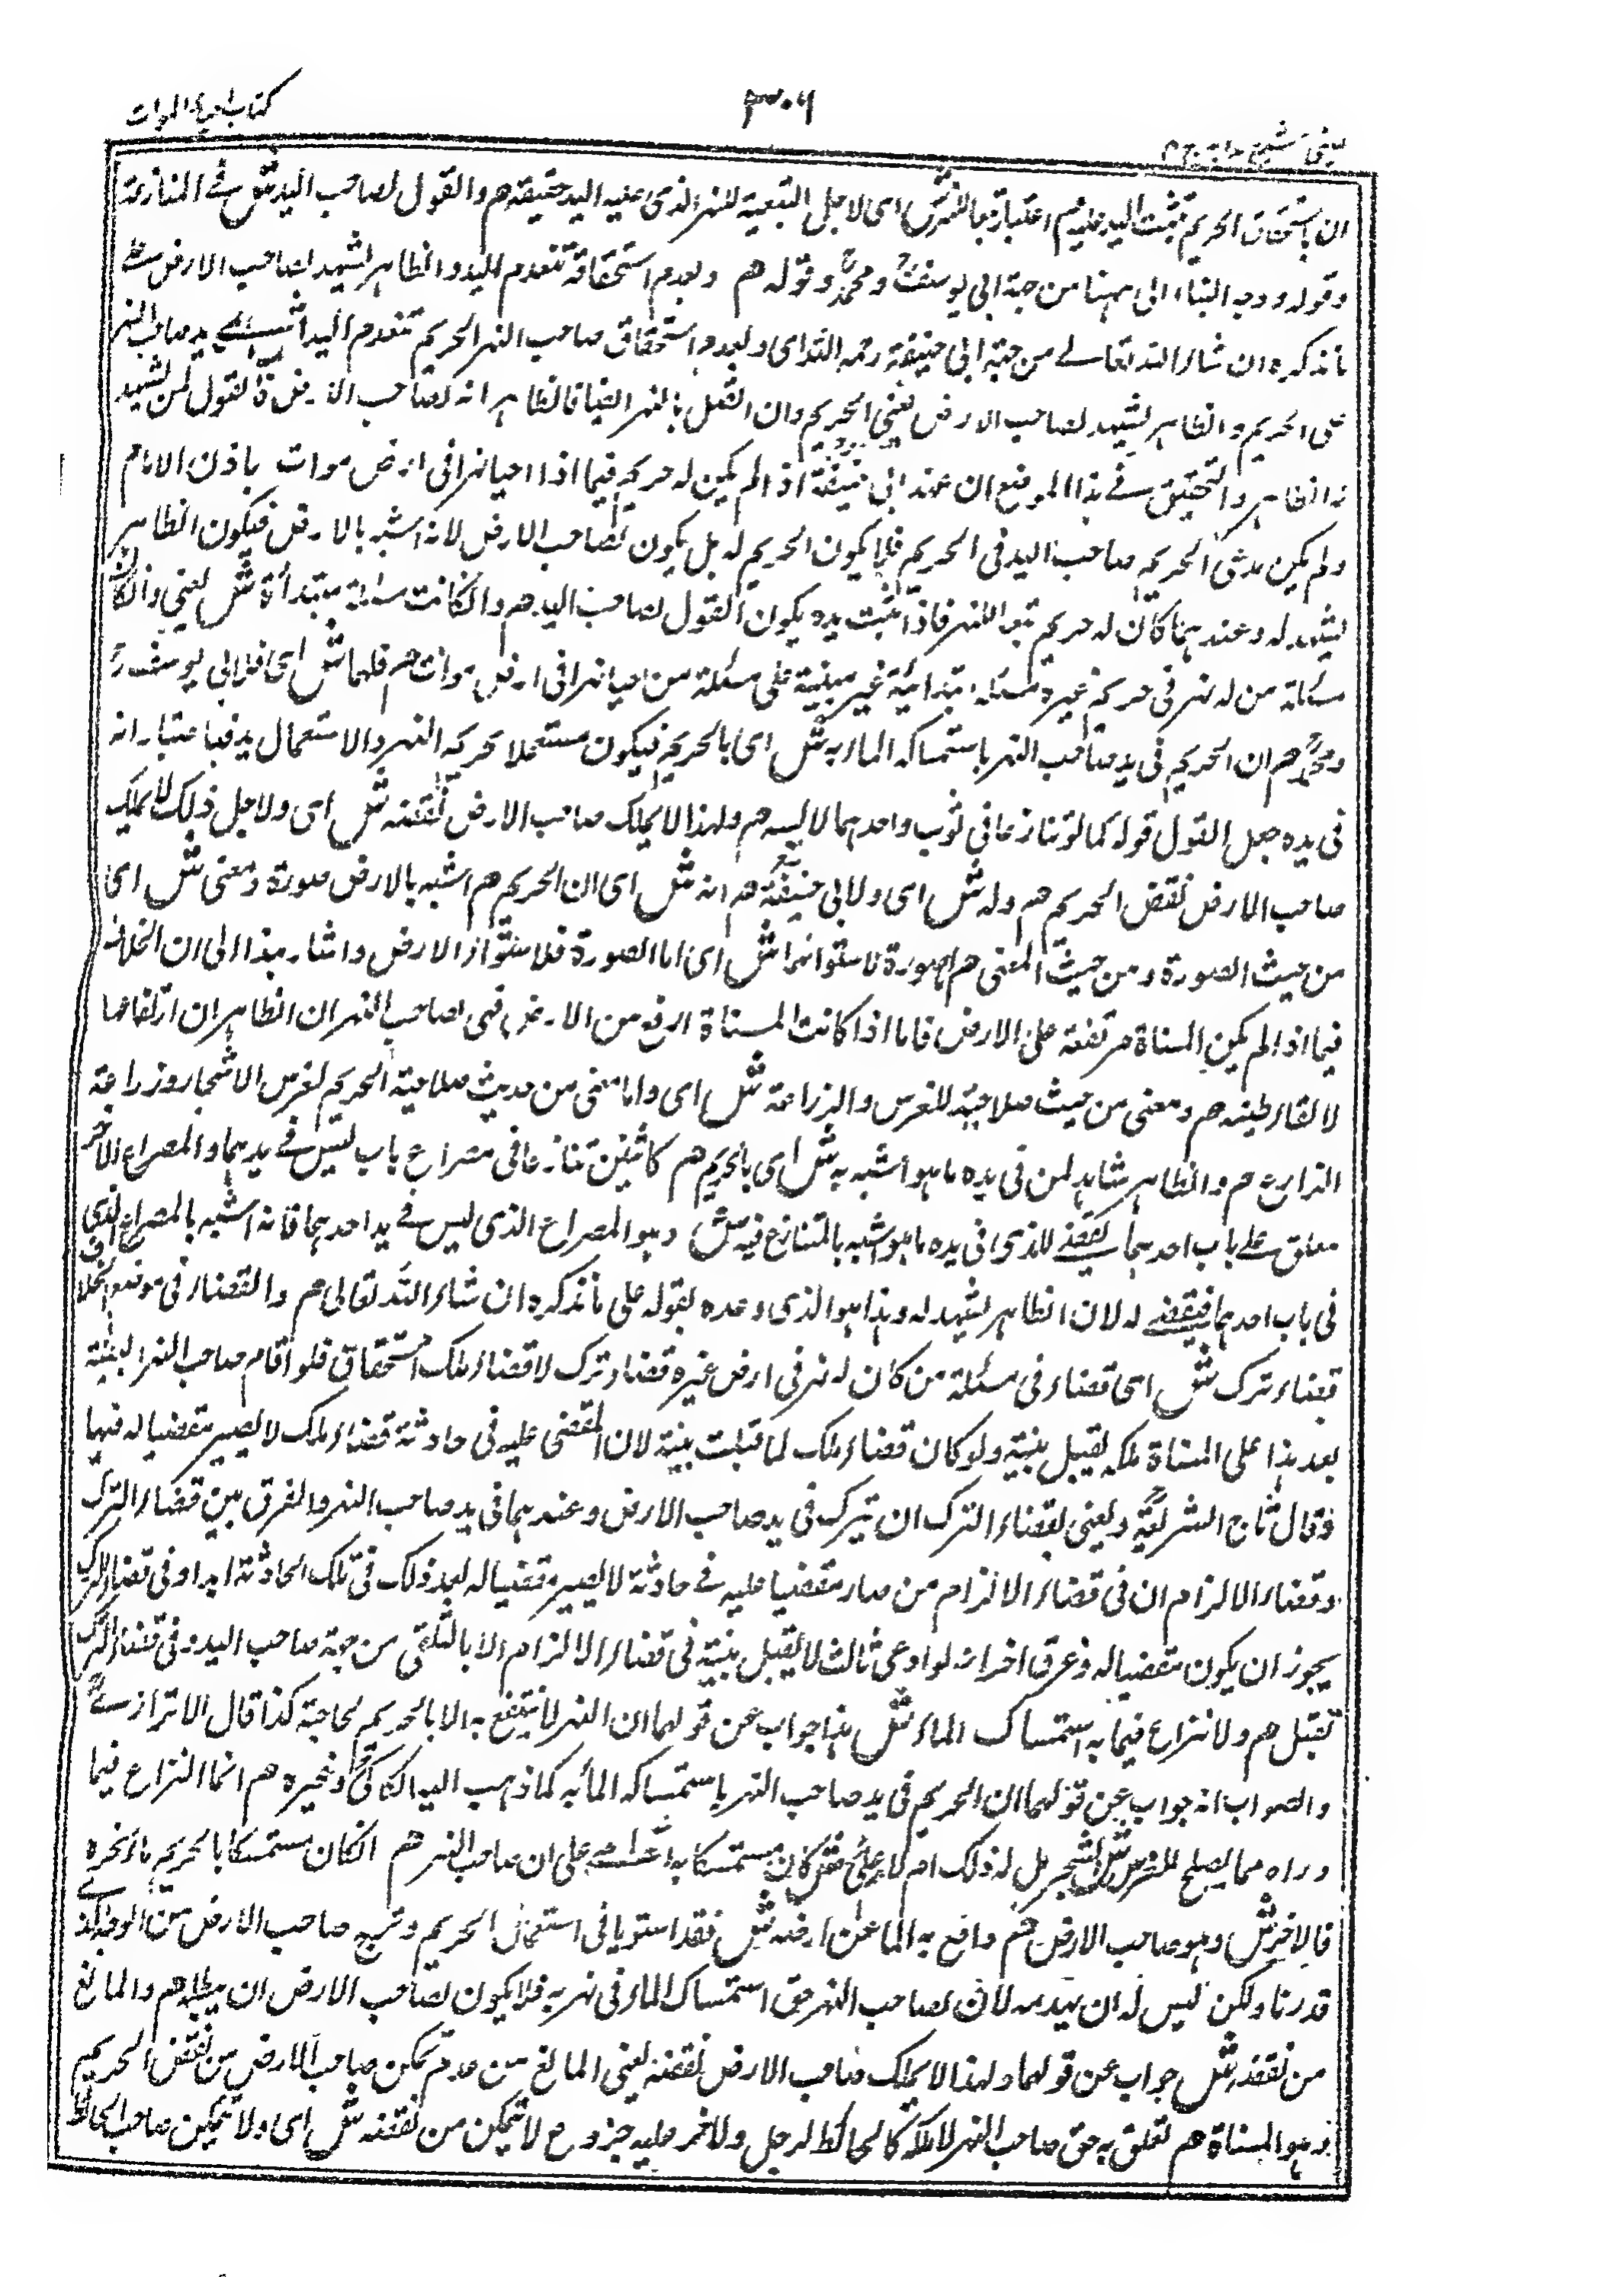 كتاب احياء الموات
٣٠٦
عينى شرح هداية ج ٤
ان باستحقاق الحريم تثبت اليد عليه هم اعتبارا تبعا للنهر ش اى لاجل التبعية للنهر الذى عليه اليد حقيقة هم والقول لصاحب اليد ش فى المنازعة
وقوله ووجه البناء الى ههنا من جهة ابى يوسف ومحمد وقوله هم وبعدم استحقاقه تنعدم اليد والظاهر يشهد لصاحب الارض على
ما نذكره ان شاء الله تعالى من جهة ابى حنيفة رحمه الله اى وبعدم استحقاق صاحب النهر الحريم تنعدم اليد اى يد صاحب النهر
على الحريم والظاهر يشهد لصاحب الارض يعنى الحريم وان اتصل بالنهر ايضا فالظاهر انه لصاحب الارض والقول لمن يشهد
له الظاهر والتحقيق فى هذا الموضع ان عند ابى حنيفة اذا لم يكن له حريم فيما اذا احيا نهرا فى ارض موات باذن الامام
ولم يكن مدعى الحريم صاحب اليد فى الحريم فلا يكون الحريم له بل يكون لصاحب الارض لانه اشبه بالارض فيكون الظاهر
يشهد له وعندهما كان له حريم تبعا للنهر فاذا ثبت يده يكون القول لصاحب اليد هم وان كانت مسألة مبتدأة ش يعنى وان كان
مسئلة من له نهر فى حريم غيره مسئلة ابتدائية غير مبنية على مسئلة من احيا نهرا فى ارض موات هم فلهما ش اى فلابى يوسف
ومحمد هم ان الحريم فى يد صاحب النهر باستمساكه الماء به ش اى بالحريم فيكون مستعملا حريم النهر والاستعمال يد فباعتبار انه
فى يده جعل القول قوله كما لو تنازعا فى ثوب واحدهما لابسه هم ولهذا لا يملك صاحب الارض نقضه ش اى ولاجل ذلك لا يملك
صاحب الارض نقض الحريم هم وله ش اى ولابى حنيفة هم انه ش اى ان الحريم هم اشبه بالارض صورة ومعنى ش اى
من حيث الصورة ومن حيث المعنى هم اما صورة فلاستوائهما ش اى اما الصورة فلاستواء الارض واشار بهذا الى ان الخلاف
فيما اذا لم يكن المسناة مرتفعة على الارض فاما اذا كانت المسناة ارفع من الارض فهى لصاحب النهر ان الظاهر ان ارتفاعها
لالقاء طينه هم ومعنى من حيث صلاحيته للغرس والزراعة ش اى واما معنى من حيث صلاحية الحريم لغرس الاشجار وزراعة
الزارع هم والظاهر شاهد لمن فى يده ما هو اشبه به ش اى بالحريم هم كاثنين تنازعا فى مصراع باب ليس فى يدهما والمصراع الآخر
معلق على باب احدهما يقضى للذى فى يده ما هو اشبه بالمتنازع فيه ش وهو المصراع الذى ليس فى يد احدهما فانه اشبه بالمصراع الذى
فى باب احدهما فيقضى له لان الظاهر يشهد له وهذا هو الذى وعده بقوله على ما نذكره ان شاء الله تعالى هم والقضاء فى موضع الخلاف
قضاء ترك ش اى قضاء فى مسئلة من كان له نهر فى ارض غيره قضاء ترك لا قضاء ملك استحقاق فلو اقام صاحب النهر البينة
بعد هذا على المسناة ملكه يقبل بينته ولو كان قضاء ملك لما قبلت بينته لان المقضى عليه فى حادثة قضاء ملك لا يصير مقضيا له فيها
وقال تاج الشريعة ويعنى بقضاء الترك ان يترك فى يد صاحب الارض وعندهما فى يد صاحب النهر والفرق بين قضاء الترك
وقضاء الالزام ان فى قضاء الالزام من صار مقضيا عليه فى حادثة لا يصير مقضيا له بعد ذلك فى تلك الحادثة ابدا وفى قضاء الترك
يجوز ان يكون مقضيا له وفرق اخر انه لو ادعى ثالث لا يقبل بينته فى قضاء الالزام الا بالتلقى من جهة صاحب اليد وفى قضاء الترك
تقبل هم ولا نزاع فيما به استمساك الماء ش هذا جواب عن قولهما ان النهر لا ينتفع به الا بالحريم لحاجته كذا قال الاترازى
والصواب انه جواب عن قولهما ان الحريم فى يد صاحب النهر باستمساكه الماء به كما ذهب اليه الكاكى وغيره هم انما النزاع فيما
وراءه مما يصلح للغرس ش اى الشجر هل له ذلك ام لا هم على انه ان كان مستمسكا به على ان صاحب النهر هم ان كان مستمسكا بالحريم ماء نهره
فالاخر ش وهو صاحب الارض هم دافع به الماء عن ارضه ش فقد استويا فى استعمال الحريم وترجح صاحب الارض من الوجه الذى
قررنا ولكن ليس له ان يهدمه لان لصاحب النهر حق استمساك الماء فى نهره به فلا يكون لصاحب الارض ان يبطله هم والمانع
من نقضه ش جواب عن قولهما ولهذا لا يملك صاحب الارض نقضه يعنى المانع من عدم تمكن صاحب الارض من نقض الحريم
وهو المسناة هم تعلق به حق صاحب النهر لا ملكه كالحائط لرجل ولاخر عليه جذوع لا يتمكن من نقضه ش اى ولا يتمكن صاحب الحائط